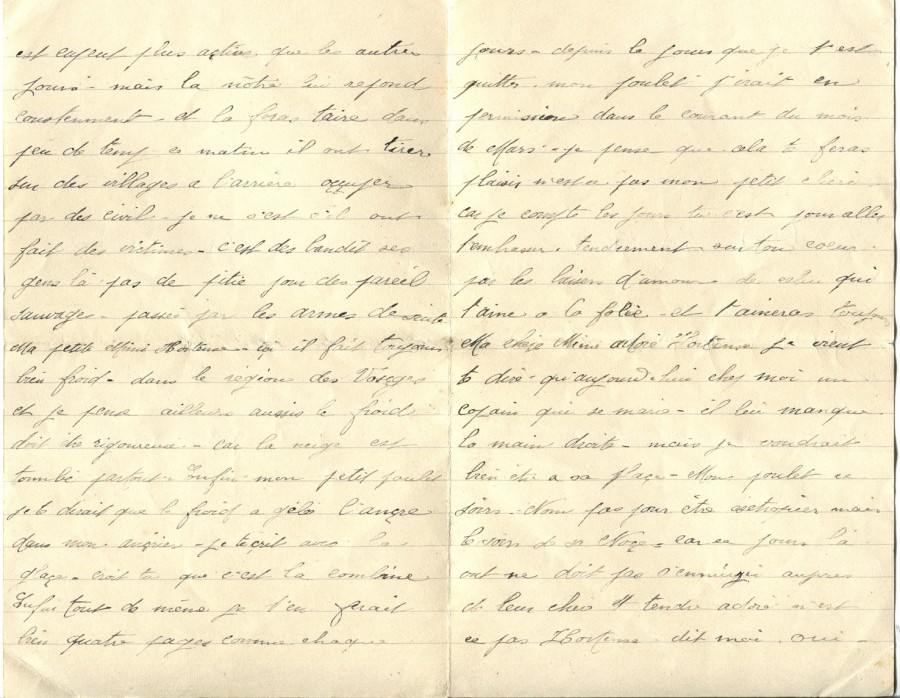 est enjent plus actives que les autres
jours - mais la nôtre lui repond
constenment - et la feras taire dans
peu de temp ce matin il ont tirer
sur des villages a l'arrière occuper
par des civil - je ne s'est s'il ont
fait des victimes - c'est des bandit ses
gens là pas de pitié pour des pareil
sauvages - passés par les armes de suite
Ma petite Mimi Hortense - ici il fait toujours
bien froid - dans le région des Vosges
et je pense ailleurs aussis le froid
doit être rigoureuse - car la neige est
tombé partout - Enfin mon petit poulet
je te dirait que le froid a gélés l'ancre
dans mon ancrier - je t'ecrit avec la
glaçe - croit tu que c'est la combine
Enfin tout de même je t'en ferait
bien quatre pages comme chaque
jours - depuis le jours que je t'est
quitter mon poulet j'irait en
permission dans le courant du mois
de Mars - je pense que cela te feras
plaisir n'est a pas mon petit chéri
car je compte les jours tu c'est pour aller
t'embrasser tendrement sur ton coeur
par les baisers d'amour de celui qui
t'aime a la folie - et t'aimeras toujours
Ma chère Mimi adoré Hortense je vient
te dire qu'aujourd'hui chez moi un
copain qui se marie - il lui manque
la main droite - mais je voudrait
bien être a sa plaçe - Mon poulet ce
soirs - Non pas pour être mais
le soirs de sa Noçe - car ce jours là
ont ne doit pas s'ennuyer aupres
de leur cher et tendre adoré n'est
ce pas Hortense dit moi oui -